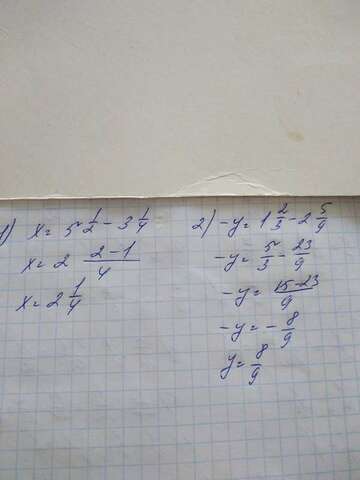 1) x = 5 1/2 - 3 1/4
x = 2 (2-1)/4
x = 2 1/4
2) -y = 1 2/3 - 2 5/9
-y = 5/3 - 23/9
-y = (15-23)/9
-y = - 8/9
y = 8/9